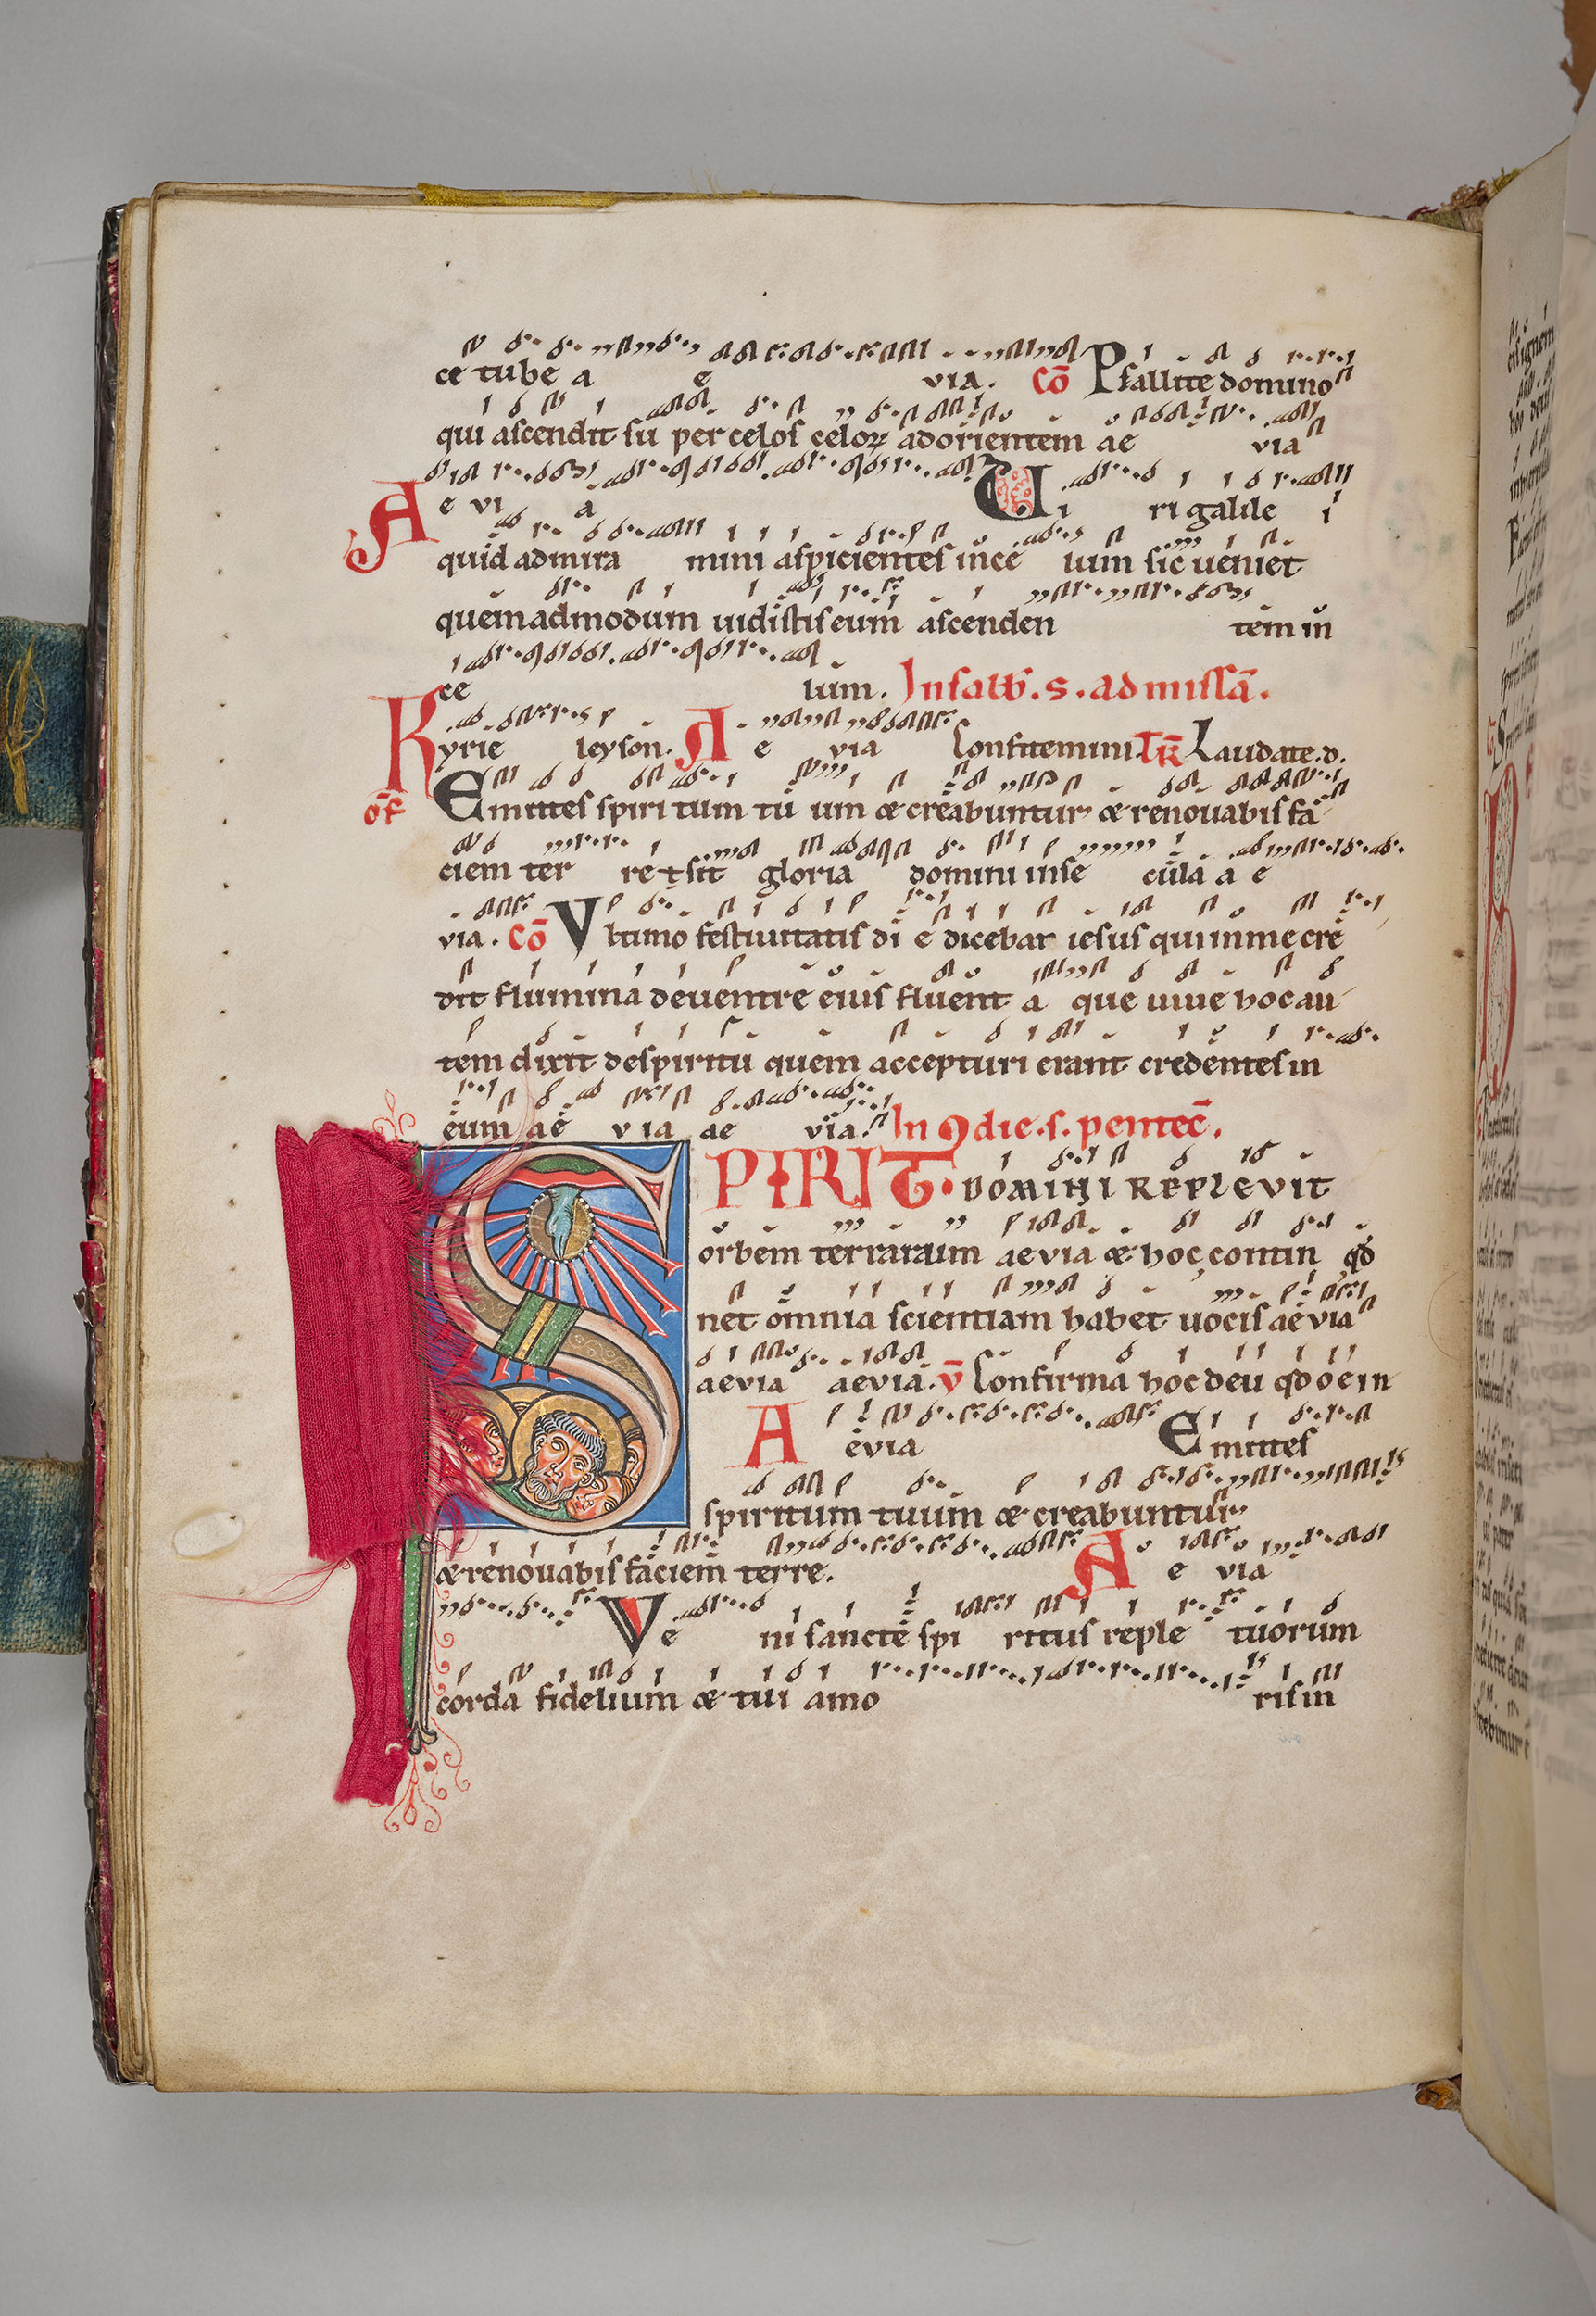 ce tube a e via. Cō Psallite domino
qui ascendit sup̄ celos celoꝝ ad orientem ae via
A e vi a Viri galilei
quid admiramini aspicientes in celum sic ueniet
quemadmodum uidistis eum ascendentem in
ce lum. In sabb̄. s. ad missā.
Kyrie leyson. A e via Confitemini. TR̄ Laudate. d.
of̄ Emittes spiritum tuum & creabuntur & renouabis fa
ciem terre + sit gloria domini in secula a e
via. Cō Vltimo festiuitatis di e dicebat iesus qui in me cre
dit flumina de uentre eius fluent aque uiue hoc au
tem dixit de spiritu quem accepturi erant credentes in
eum ae via ae via. In die. s. pentec̄.
SPIRIT: DOMINI REPLEVIT
orbem terrarum aevia & hoc contin qd
net omnia scientiam habet uocis aevia
aevia aevia. v̄ Confirma hoc deu qd oē in
A evia Emittes
spiritum tuum & creabuntur
& renouabis faciem terre. A e via
Veni sancte spiritus reple tuorum
corda fidelium & tui amo ris in